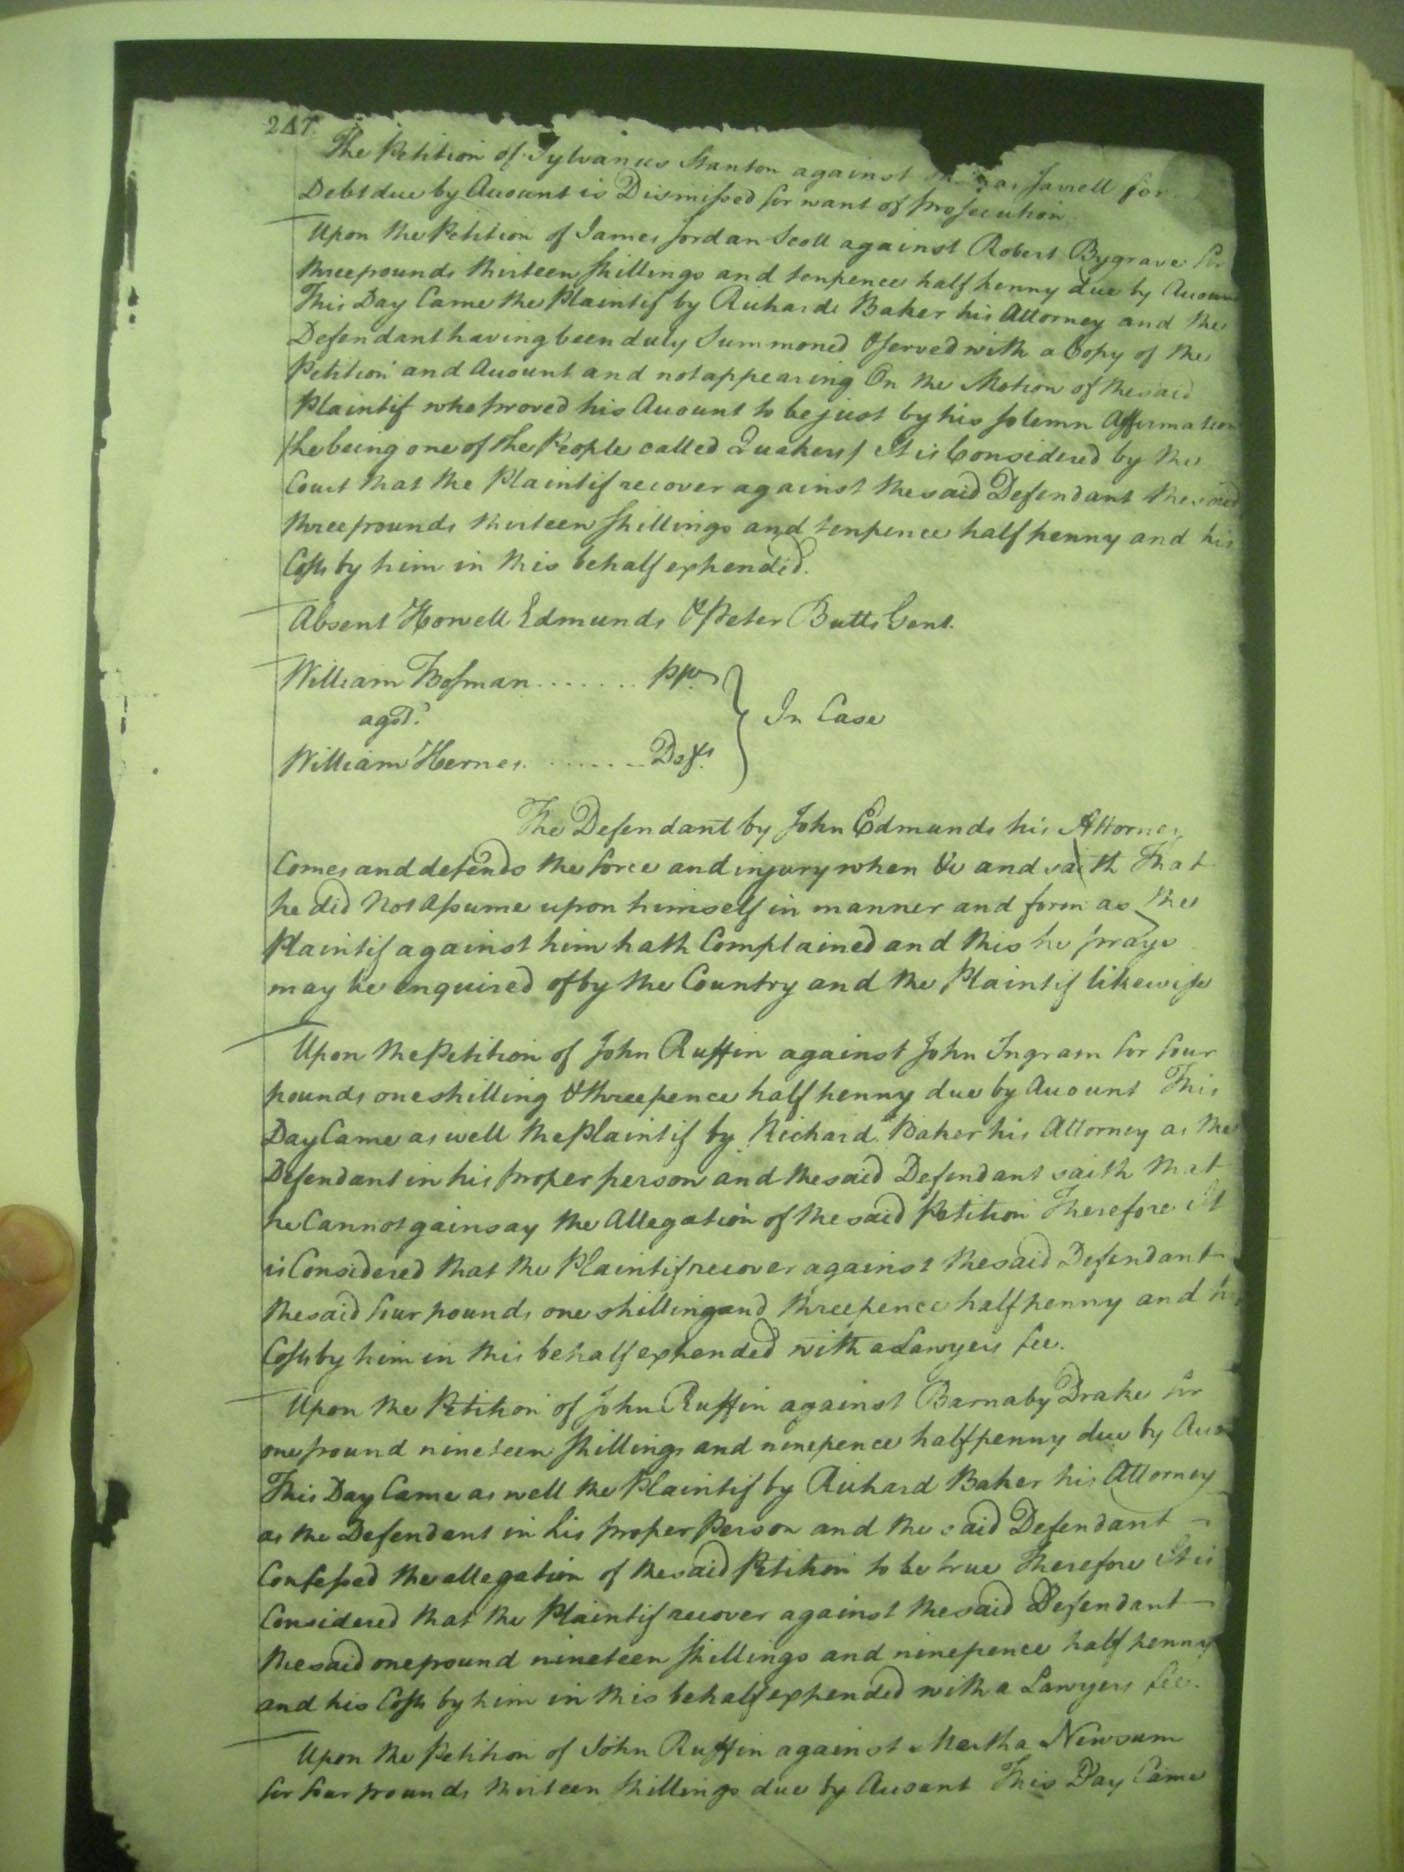 247
The Petition of Sylvanus Stanton against Jarrell for
Debt due by Account is Dismissed for want of prosecution
Upon the Petition of James Jordan Scott against Robert Bygrave for
three pounds thirteen shillings and tenpence half penny due by Accoun
This Day Came the Plaintif by Richard Baker his Attorney and the
Defendant having been duly Summoned & served with a Copy of the
Petition and Account and not appearing On the Motion of the said
Plaintif who proved his Account to be just by his solemn Affirmation
(he being one of the People called Quakers) It is Considered by the
Court that the Plaintif recover against the said Defendant the said
three pounds thirteen shillings and tenpence half penny and his
Costs by him in this behalf expended.
Absent Howell Edmunds & Peter Butts Gent.
William Bosman ....... pp.
agst.
William Hernes ....... Deft.
In Case
The Defendant by John Edmunds his Attorney
Comes and defends the force and injury when &c and saith That
he did not Assume upon himself in manner and form as the
Plaintif against him hath Complained and this he prays
may be enquired of by the Country and the Plaintif likewise
Upon the Petition of John Ruffin against John Ingram for four
pounds one shilling & threepence half penny due by Account This
Day Came as well the Plaintif by Richard Baker his Attorney as the
Defendant in his proper person and the said Defendant saith that
he Cannot gainsay the Allegation of the said Petition Therefore It
is Considered that the Plaintif recover against the said Defendant
the said four pounds one shilling and threepence half penny and his
Costs by him in this behalf expended with a Lawyers fee.
Upon the Petition of John Ruffin against Barnaby Drake for
one pound nineteen shillings and ninepence half penny due by Acco
This Day Came as well the Plaintif by Richard Baker his Attorney
as the Defendant in his proper Person and the said Defendant
Confessed the allegation of the said Petition to be true Therefore It is
Considered that the Plaintif recover against the said Defendant
the said one pound nineteen shillings and ninepence half penny
and his Costs by him in this behalf expended with a Lawyers fee.
Upon the Petition of John Ruffin against Martha Newsum
for four pounds thirteen shillings due by Account This Day Came